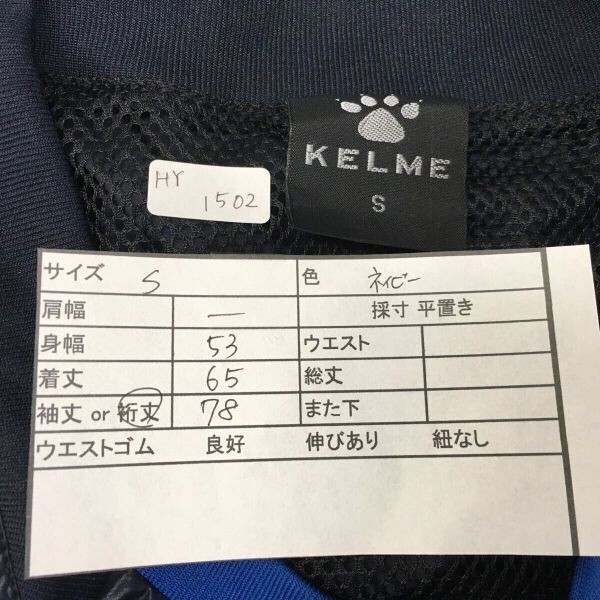 KELME
S
HY
1502
サイズ S 色 ネイビー
肩幅 — 採寸 平置き
身幅 53 ウエスト
着丈 65 総丈
袖丈 or 裄丈 78 また下
ウエストゴム 良好 伸びあり 紐なし